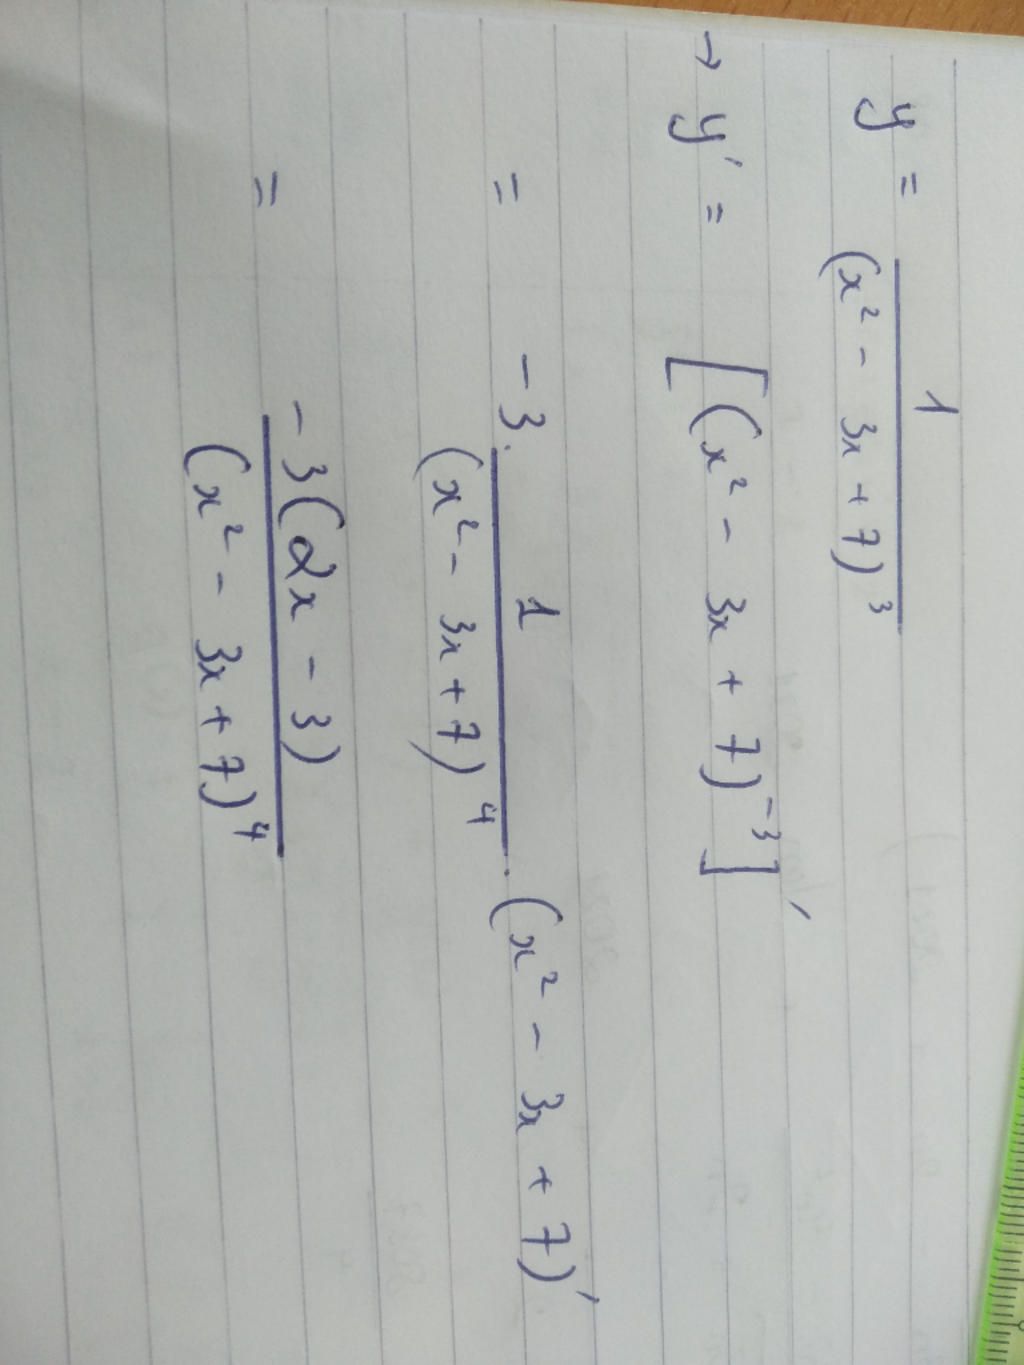 y = 1/(x² - 3x + 7)³
→ y' = [(x² - 3x + 7)⁻³]'
= -3 . 1/(x² - 3x + 7)⁴ . (x² - 3x + 7)'
= -3(2x - 3)/(x² - 3x + 7)⁴